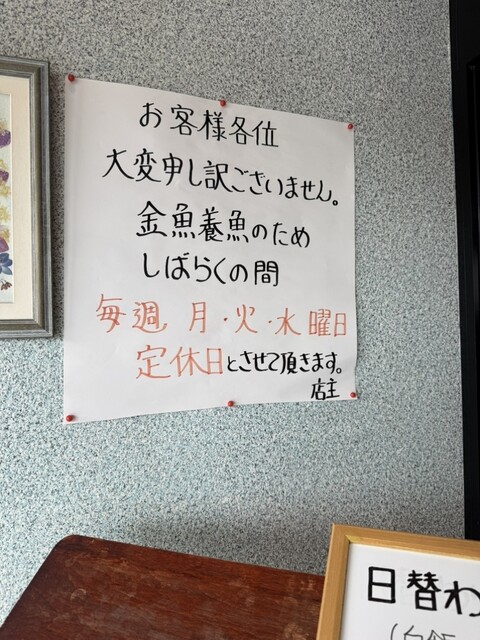 お客様各位
大変申し訳ございません。
金魚養魚のため
しばらくの間
毎週 月・火・水曜日
定休日とさせて頂きます。
店主
日替わ